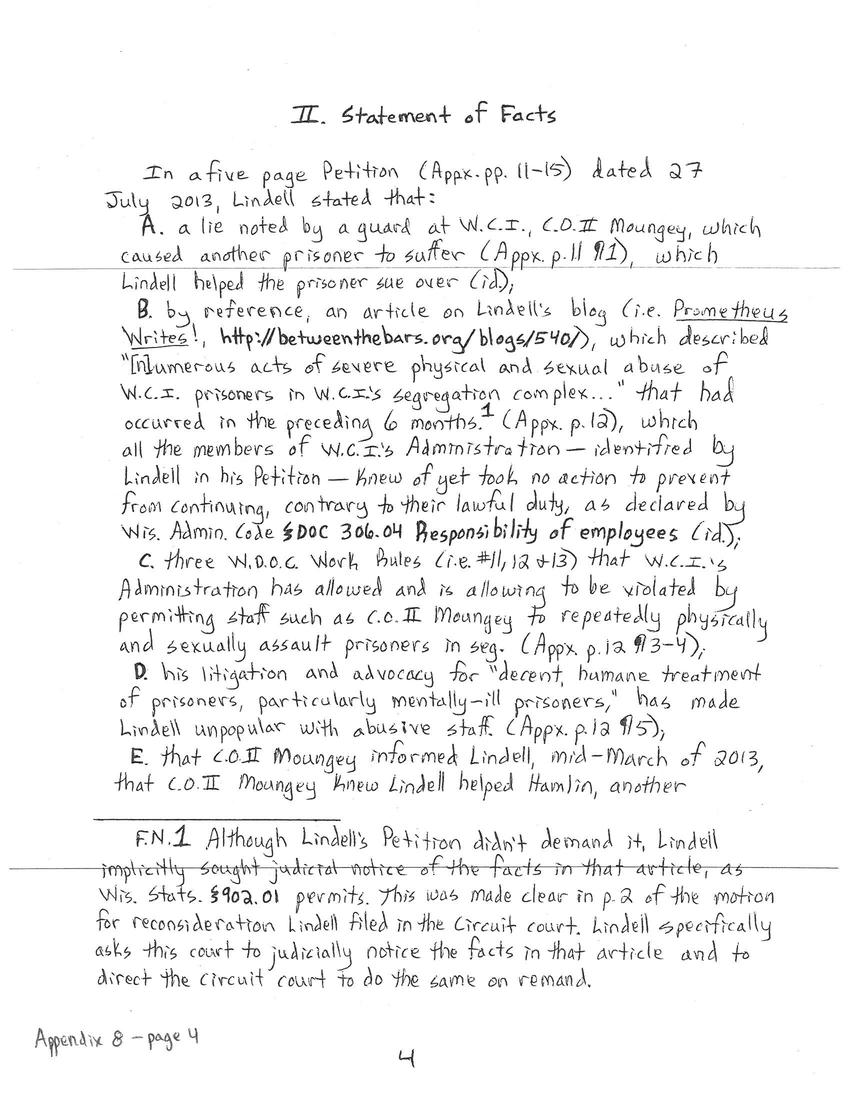 II. Statement of Facts
In a five page Petition (Appx. pp. 11-15) dated 27
July 2013, Lindell stated that:
A. a lie noted by a guard at W.C.I., C.O.II Moungey, which
caused another prisoner to suffer (Appx. p.11 ¶1), which
Lindell helped the prisoner sue over (id.);
B. by reference, an article on Lindell's blog (i.e. Prometheus
Writes!, http://betweenthebars.org/blogs/540/), which described
"[n]umerous acts of severe physical and sexual abuse of
W.C.I. prisoners in W.C.I.'s segregation complex..." that had
occurred in the preceding 6 months.1 (Appx. p.12), which
all the members of W.C.I.'s Administration — identified by
Lindell in his Petition — knew of yet took no action to prevent
from continuing, contrary to their lawful duty, as declared by
Wis. Admin. Code §DOC 306.04 Responsibility of employees (id.);
C. three W.D.O.C. Work Rules (i.e. #11, 12 +13) that W.C.I.'s
Administration has allowed and is allowing to be violated by
permitting staff such as C.O.II Moungey to repeatedly physically
and sexually assault prisoners in seg. (Appx. p.12 ¶3-4);
D. his litigation and advocacy for "decent, humane treatment
of prisoners, particularly mentally-ill prisoners," has made
Lindell unpopular with abusive staff. (Appx. p.12 ¶5);
E. that C.O.II Moungey informed Lindell, mid-March of 2013,
that C.O.II Moungey knew Lindell helped Hamlin, another
F.N.1 Although Lindell's Petition didn't demand it, Lindell
implicitly sought judicial notice of the facts in that article, as
Wis. Stats. §902.01 permits. This was made clear in p.2 of the motion
for reconsideration Lindell filed in the Circuit court. Lindell specifically
asks this court to judicially notice the facts in that article and to
direct the circuit court to do the same on remand.
Appendix 8 - page 4
4